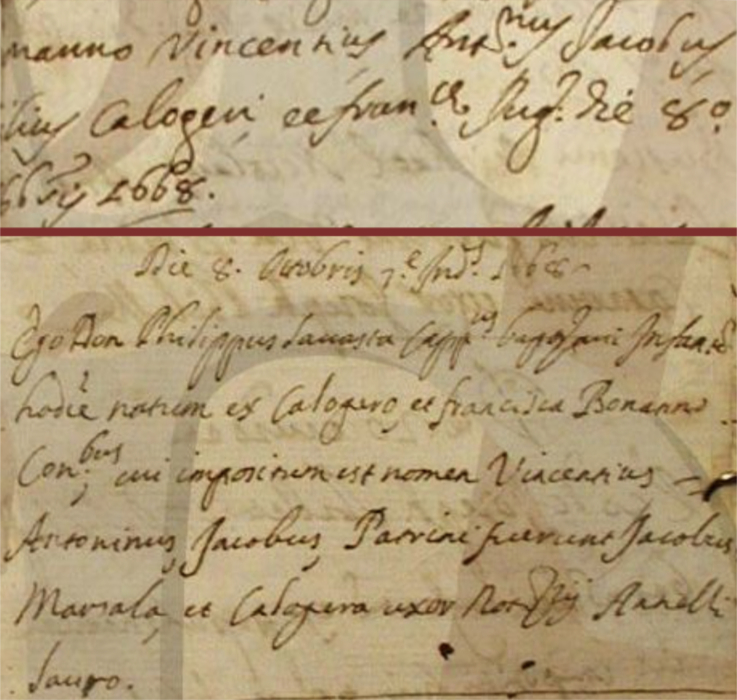 nanno Vincentius Ant.nus Jacobus
filius Calogeri et fran.ce Jug. die 8.o
8bris 1668.
Die 8. Octobris 7.e Ind.s 1668
Ego Don Philippus Sauasta Capp.us baptizaui Infan.
hodiè natum ex Calogero, et francisca Bonanno
Con:bus cui impositum est nomen Vincentius =
Antoninus, Jacobus, Patrini fuerunt Jacobus
Marsala, et Calogera uxor Not. Anelli
Sauro.